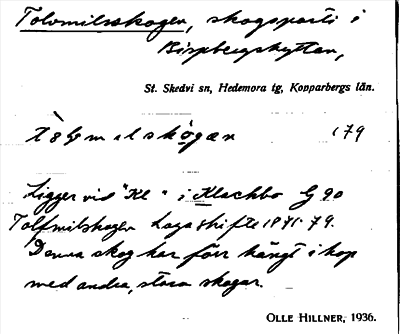 Tolvmilsskogen, skogsparti i
Bispbergshyttan,
St. Skedvi sn, Hedemora tg, Kopparbergs län.
179
Ligger vid "Kl" i Klackbo G 90
Tolfmilskogen Laga skifte 1871-79.
Denna skog har förr hängt ihop
med andra, stora skogar.
OLLE HILLNER, 1936.